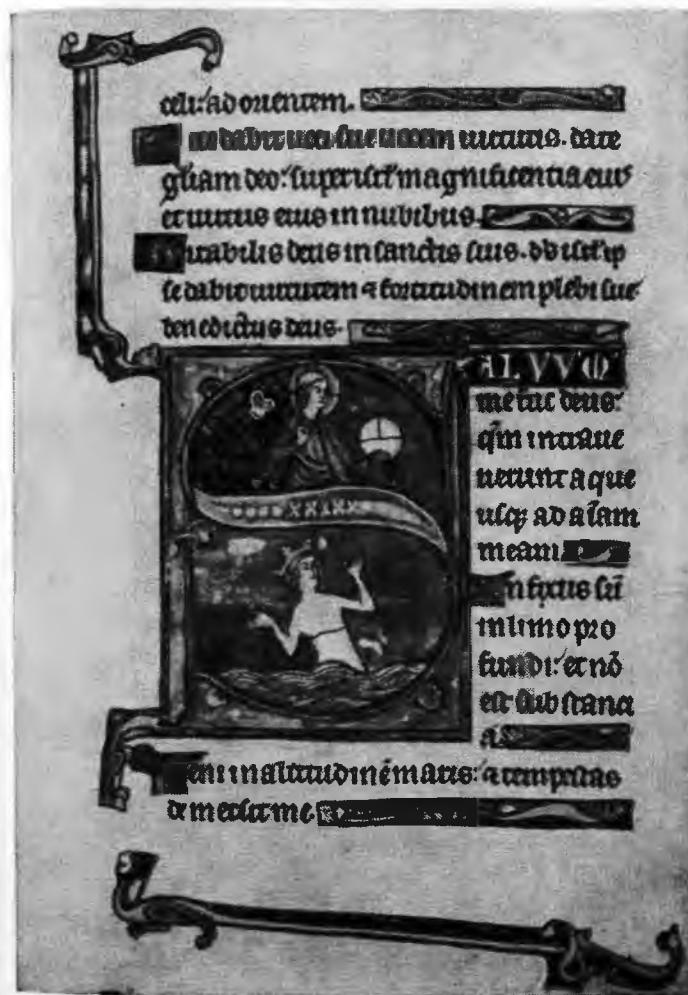 celi: ad orientem.
Ecce dabit uoci sue uocem uirtutis. date
gl̄iam deo: super isrl̄ magnificentia eius
et uirtus eius in nubibus.
Mirabilis deus in sanctis suis. ds̄ isrl̄ ip
se dabit uirtutem ⁊ fortitudinem plebi sue
benedictus deus.
SALVVM
me fac deus:
qm̄ intraue
uerunt aque
usq; ad aīam
meam.
Infixus sū
in limo pro
fundi: et nō
est substanci
a.
Ueni in altitudinē maris: ⁊ tempestas
demersit me.